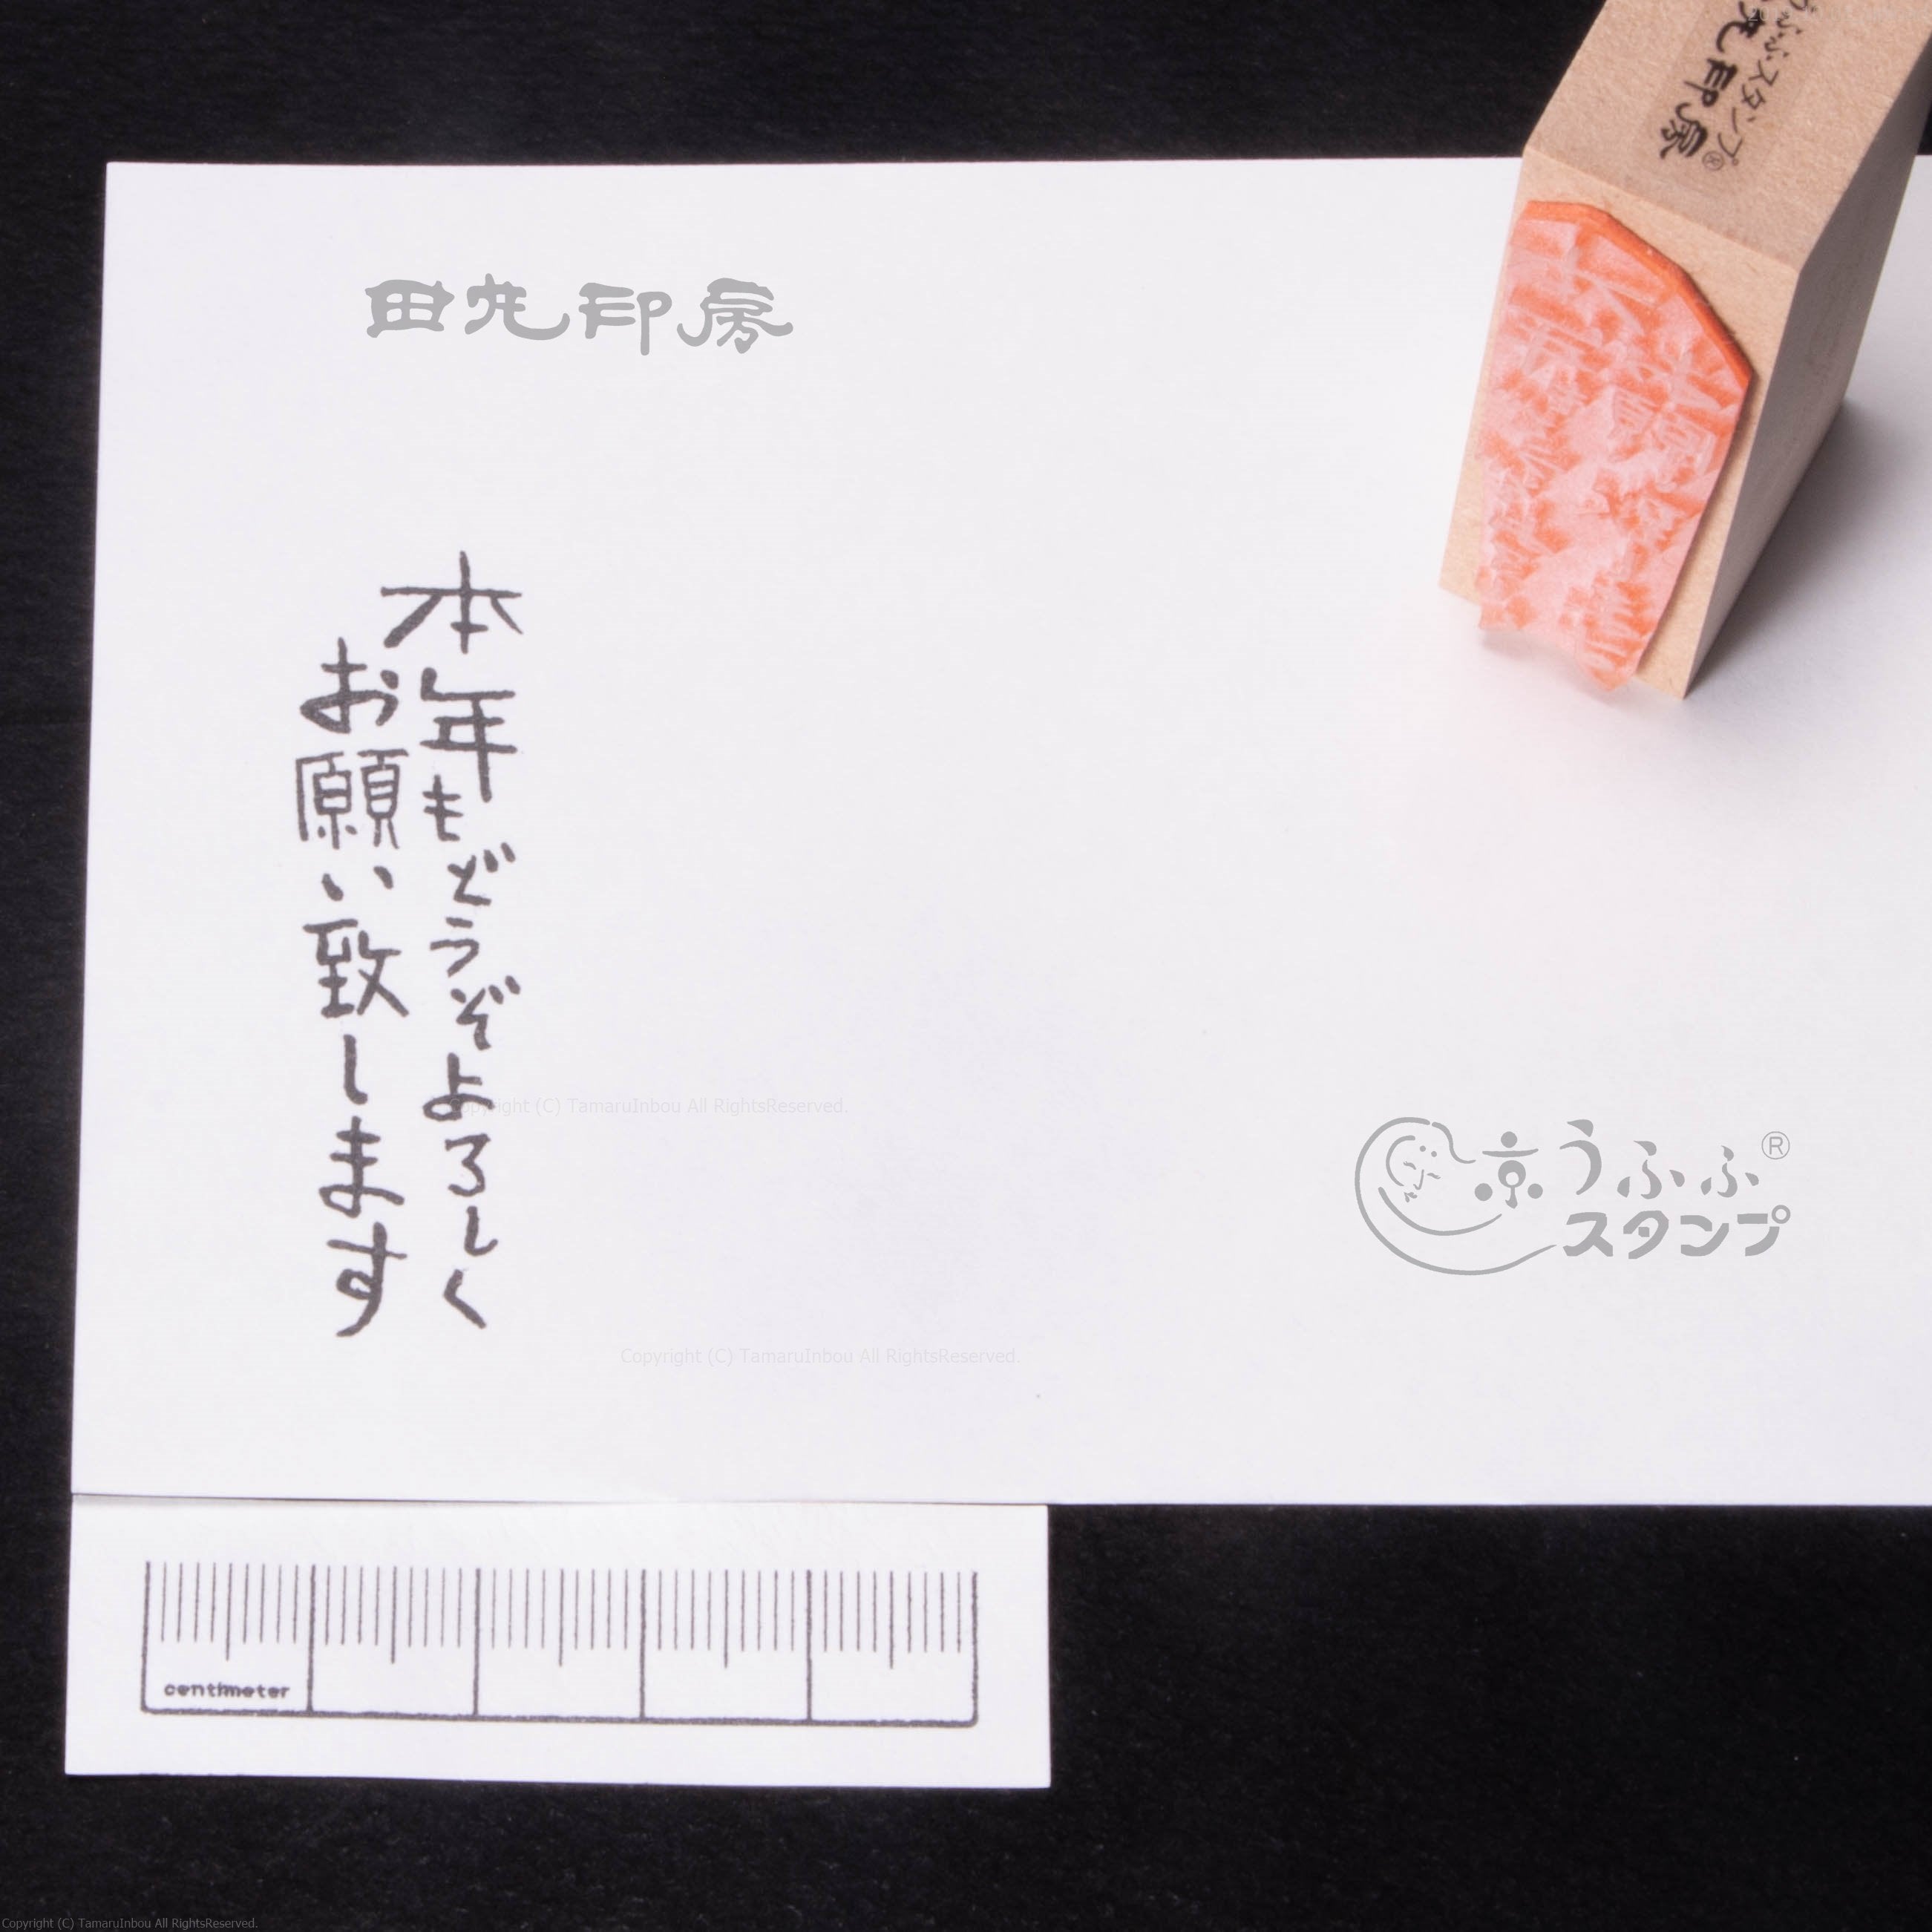 うふふスタンプ®
印房
田丸印房
本年もどうぞよろしく
お願い致します
Copyright (C) TamaruInbou All RightsReserved.
京うふふ®
スタンプ
Copyright (C) TamaruInbou All RightsReserved.
centimeter
Copyright (C) TamaruInbou All RightsReserved.